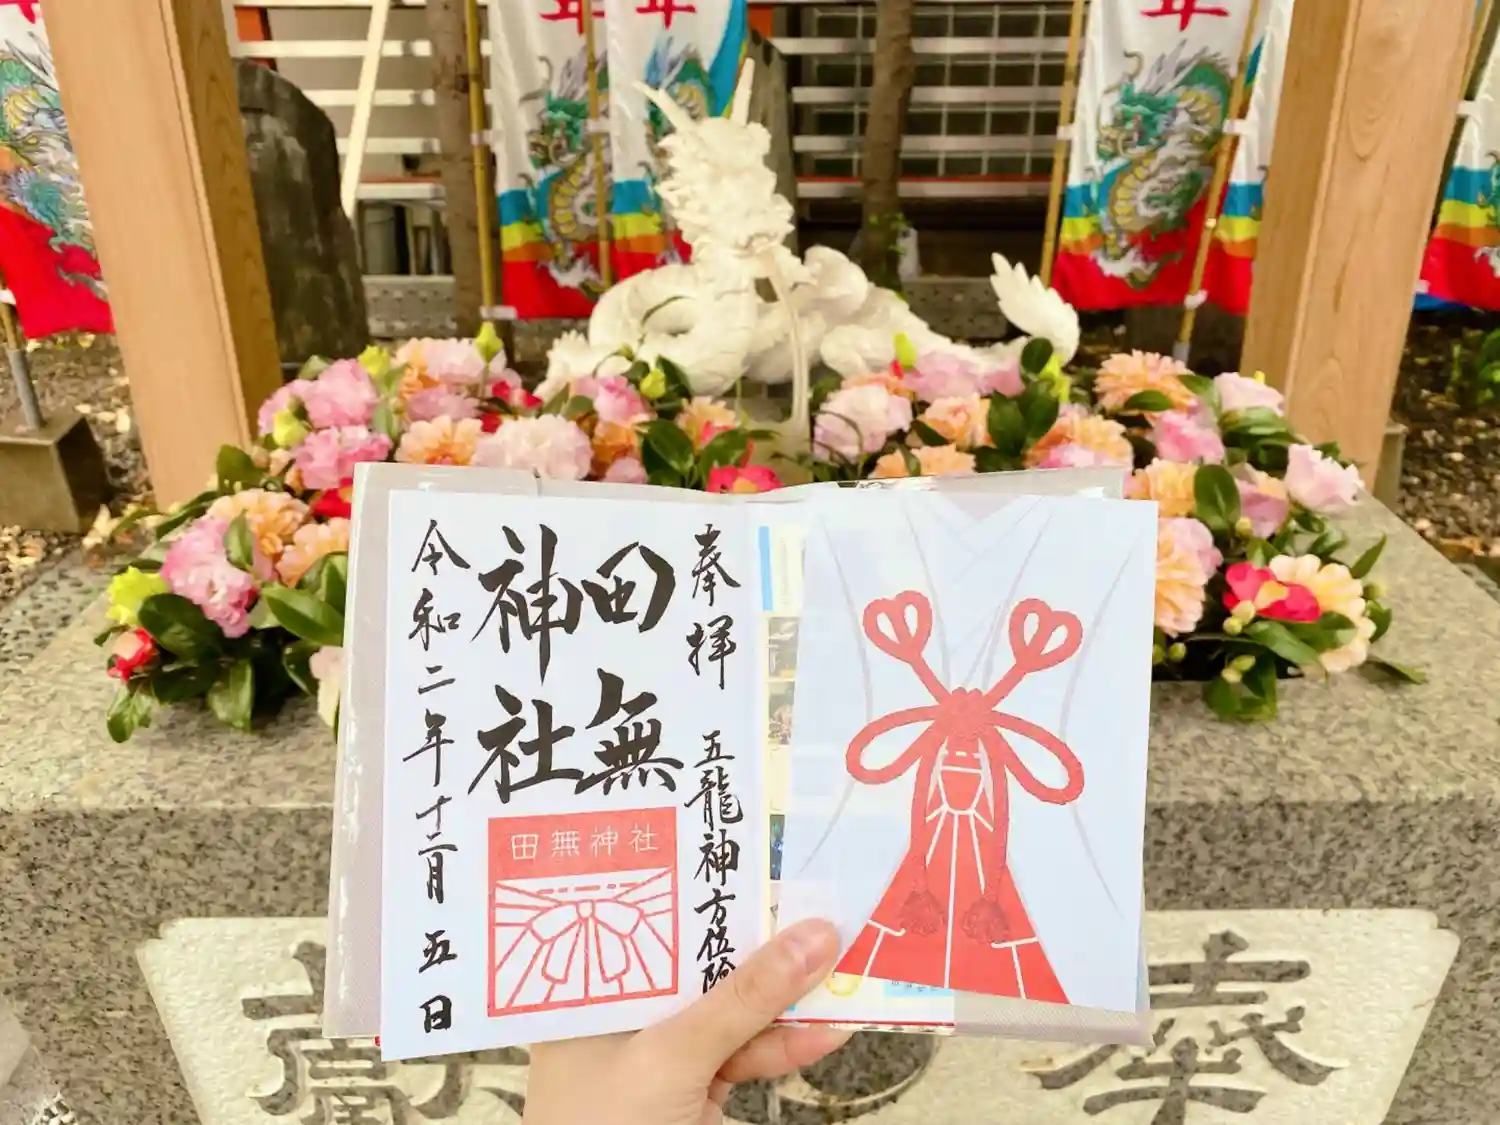 年
年
年
奉拝 五龍神方位除
田無
神社
令和二年十二月五日
田無神社
奉
献